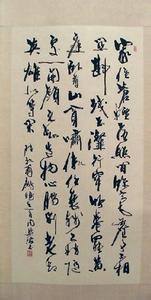 家住蒼煙落照間絲毫塵事不相
關斟殘玉瀣行穿竹卷罷黃
庭臥看山貪嘯傲任衰殘不妨隨
處一開顏元知造物心腸別老却
英雄似等閒 陸放翁